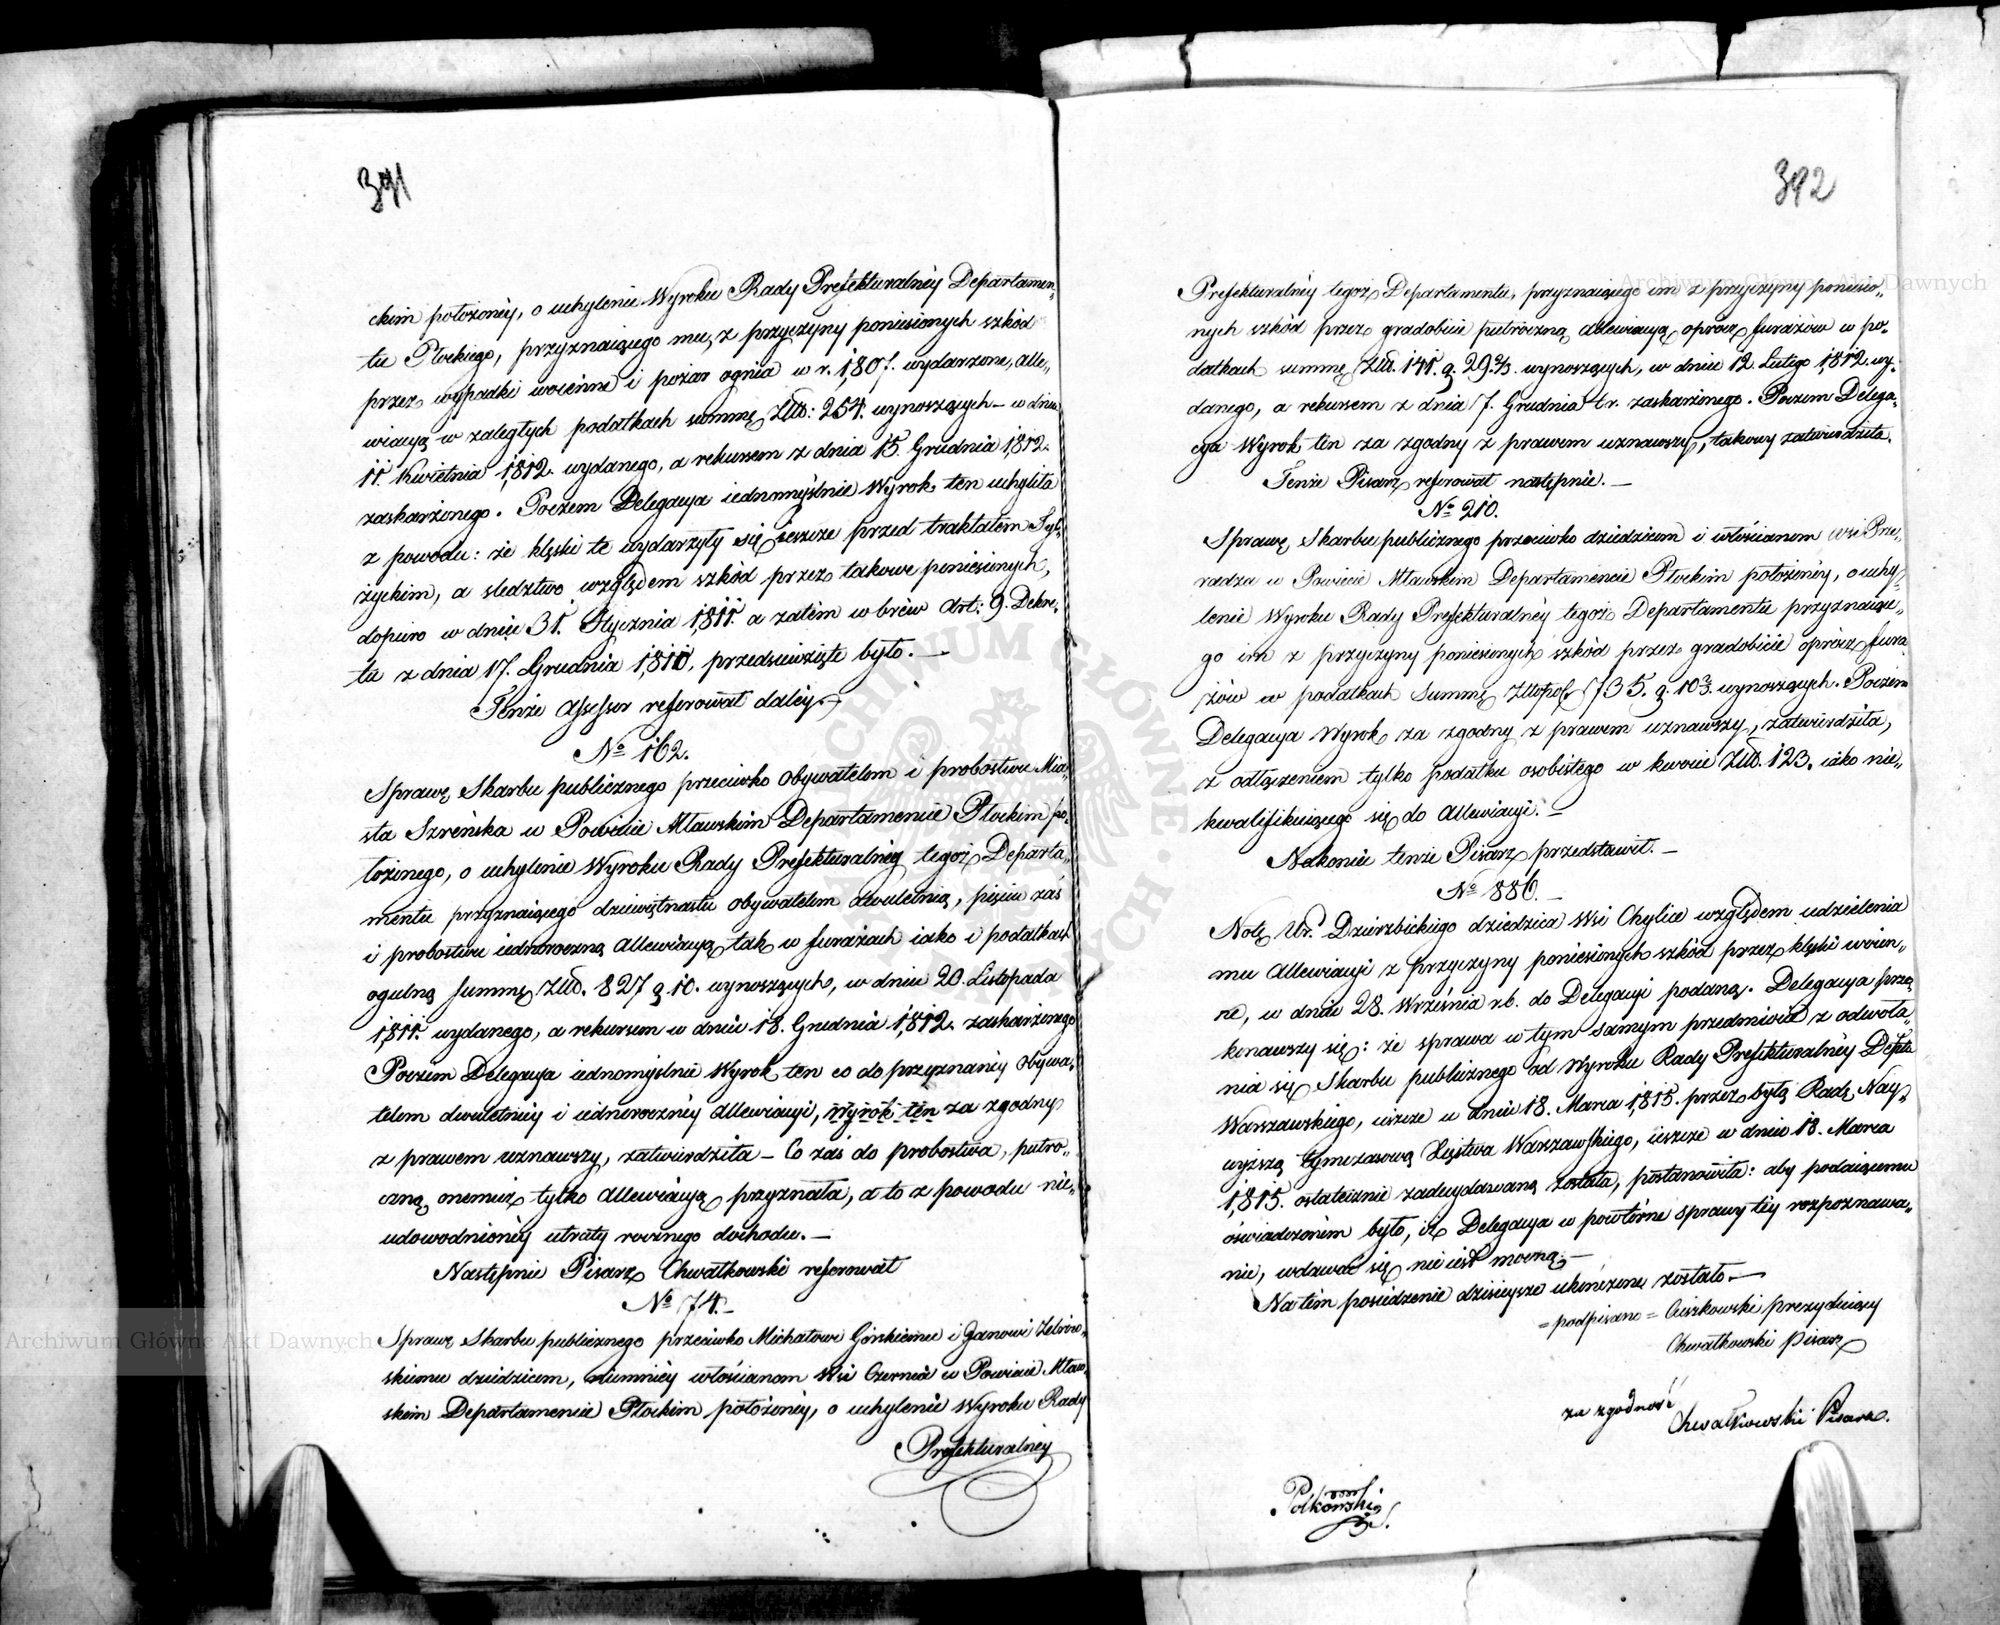 391
ckim położonéy, o uchylenie Wyroku Rady Prefekturalnéy Departamen„
tu Płockiego, przyznaiącego mu, z przyczyny poniesionych szkód
przez wypadki woienne i pożar ognia w r. 1807. wydarzone, alle„
wiacyą w zaległych podatkach summę Złł: 254. wynoszących – w dniu
11. Kwietnia 1812. wydanego, a rekursem z dnia 15. Grudnia 1812.
zaskarżonego. Poczem Delegacya iednomyślnie Wyrok ten uchyliła
z powodu: że klęski te wydarzyły się ieszcze przed traktatem Tyl„
życkim, a sledztwo względem szkód przez takowe poniesionych,
dopiero w dniu 31. Stycznia 1811. a zatém wbrew Art: 9. Dekre„
tu z dnia 17. Grudnia 1810. przedsięwzięte było. —
Tenże Assessor referował daléy. —
No 162.
Sprawę Skarbu publicznego przeciwko Obywatelom i probostwu Mia„
sta Szreńska w Powiecie Mławskim Departamencie Płockim po„
łożonego, o uchylenie Wyroku Rady Prefekturalnéy tegoż Departa„
mentu przyznaiącego dziewiętnastu obywatelom dwuletnią, pięciu zaś
i probostwu iednoroczną allewiacyą tak w furażach iako i podatkach
ogulną summę Złł. 827 g. 10. wynoszących, w dniu 20. Listopada
1811. wydanego, a rekursem w dniu 18. Grudnia 1812. zaskarżonego
Poczem Delegacya iednomyślnie Wyrok ten co do przyznanéy Obywa„
telom dwuletniéy i iednorocznéy allewiacyi, Wyrok ten za zgodny
z prawem uznawszy, zatwierdziła – Co zaś do probostwa, pułro„
czną onemuż tylko allewiacyą przyznała, a to z powodu nie„
udowodnionéy utraty rocznego dochodu. —
Następnie Pisarz Chwałkowski referował
No 74. —
Sprawę Skarbu publicznego przeciwko Michałowi Górskiemu i Janowi
skiemu dziedzicom, niemniéy włościanom Wsi Czernia w Powiecie Mław„
skim Departamencie Płockim położonéy, o uchylenie Wyroku Rady
Prefekturalnéy
392
Prefekturalnéy tegoż Departamentu, przyznaiącego im z przyczyny poniesio„
nych szkód przez gradobicie pułroczną allewiacyą oprócz furażów w po„
datkach summę Złł. 141. g 29 2/3. wynoszących, w dniu 12. Lutego 1812. wy„
danego, a rekursem z dnia 17. Grudnia t. r. zaskarżonego. Poczem Delega„
cya Wyrok ten za zgodny z prawem uznawszy, takowy zatwierdziła.
Tenże Pisarz referował następnie. —
No 210.
Sprawę Skarbu publicznego przeciwko dziedzicom i włościanom wsi
radza w Powiecie Mławskim Departamencie Płockim położonéy, o uchy„
lenie Wyroku Rady Prefekturalnéy tegoż Departamentu przyznaiące„
go im z przyczyny poniesionych szkód przez gradobicie oprócz fura
żów w podatkach Summę Złotpol. 735. g. 10 2/3. wynoszących. Poczem
Delegacya Wyrok za zgodny z prawem uznawszy, zatwierdziła,
z odłączeniem tylko podatku osobistego w kwocie Złł. 123. iako nie„
kwalifikuiącego się do Allewiacyi. —
Nakoniec tenże Pisarz przedstawił. —
No 886. —
Notę Ur. Dzierzbickiego dziedzica Wsi Chylic względem udzielenia
mu Allewiacyi z przyczyny poniesionych szkód przez klęski woien„
ne, w dniu 28. Września r. b. do Delegacyi podaną. Delegacya prze
konawszy się: że sprawa w tym samym przedmiocie z odwoła„
nia się Skarbu publicznego od Wyroku Rady Prefekturalnéy Depta
Warszawskiego, ieszcze w dniu 18. Marca 1815. przez byłą Radę Nay„
wyższą tymczasową Xięstwa Warszawskiego, ieszcze w dniu 18. Marca
1815. ostatecznie zadecydowaną została, postanowiła: aby podaiącemu
oświadczoném było, iż Delegacya w powtórne sprawy téy rozpoznawa„
nie, wdawać się nie iest mocną. —
Na tém posiedzenie dzisieysze ukończone zostało. —
= podpisano = Cieszkowski prezyduiący
Chwałkowski Pisarz
za zgodność
Chwałkowski Pisarz.
Polkowski
Archiwum Główne Akt Dawnych
Archiwum Główne Akt Dawnych
ARCHIWUM GŁÓWNE AKT DAWNYCH